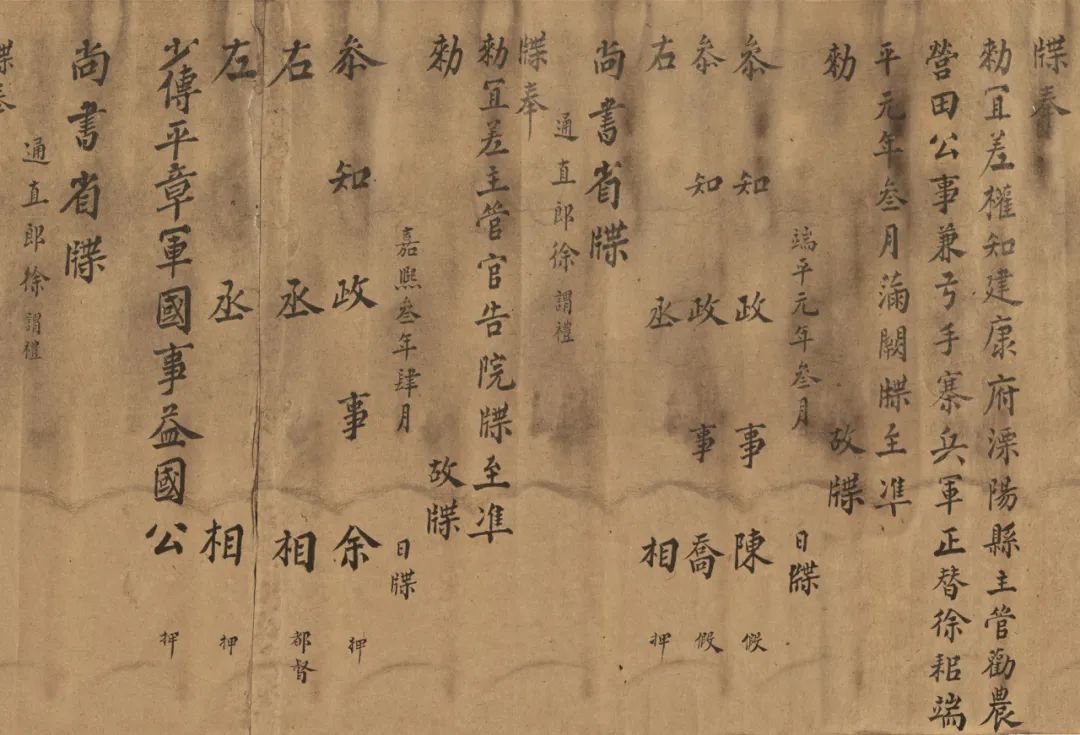 牒奉
勑冝差權知建康府溧陽縣主管勸農
營田公事兼弓手寨兵軍正替徐耜端
平元年叁月滿闕牒至准
勑 故牒
端平元年叁月 日牒
叅知政事陳 假
叅知政事喬 假
右丞相 押
尚書省牒
通直郎徐謂禮
牒奉
勑冝差主管官告院牒至准
勑 故牒
嘉熈叁年肆月 日牒
叅知政事余 押
右丞相 都督
左丞相 押
少傅平章軍國事益國公 押
尚書省牒
通直郎徐謂禮
牒奉